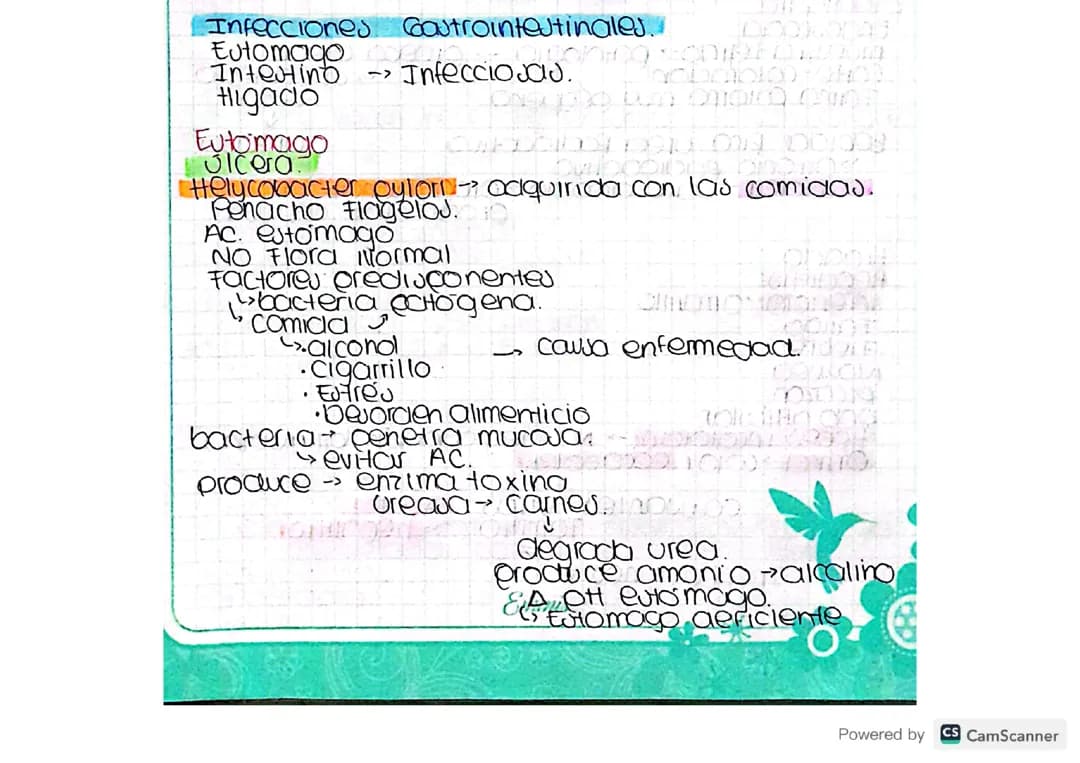 Infecciones Gastrointestinales.
Estomago
Intestino -> Infecciosas.
Higado
Estomago
Úlcera.
Helycobacter pylori -> adquirida con las comidas.
Penacho Flagelos.
AC. estomago
NO Flora Normal
Factores predisponentes
↳ bacteria patogena.
↳ comida ↗
↳ · alcohol → causa enfermedad.
· Cigarrillo
· Estres
· Desorden alimenticio
bacteria → penetra mucosa.
↳ evitar AC.
produce → enzima toxina
Ureasa → carnes.
↓
degrada urea.
produce amonio → alcalino
Δ pH estomago.
↳ Estomago deficiente
Powered by CS CamScanner